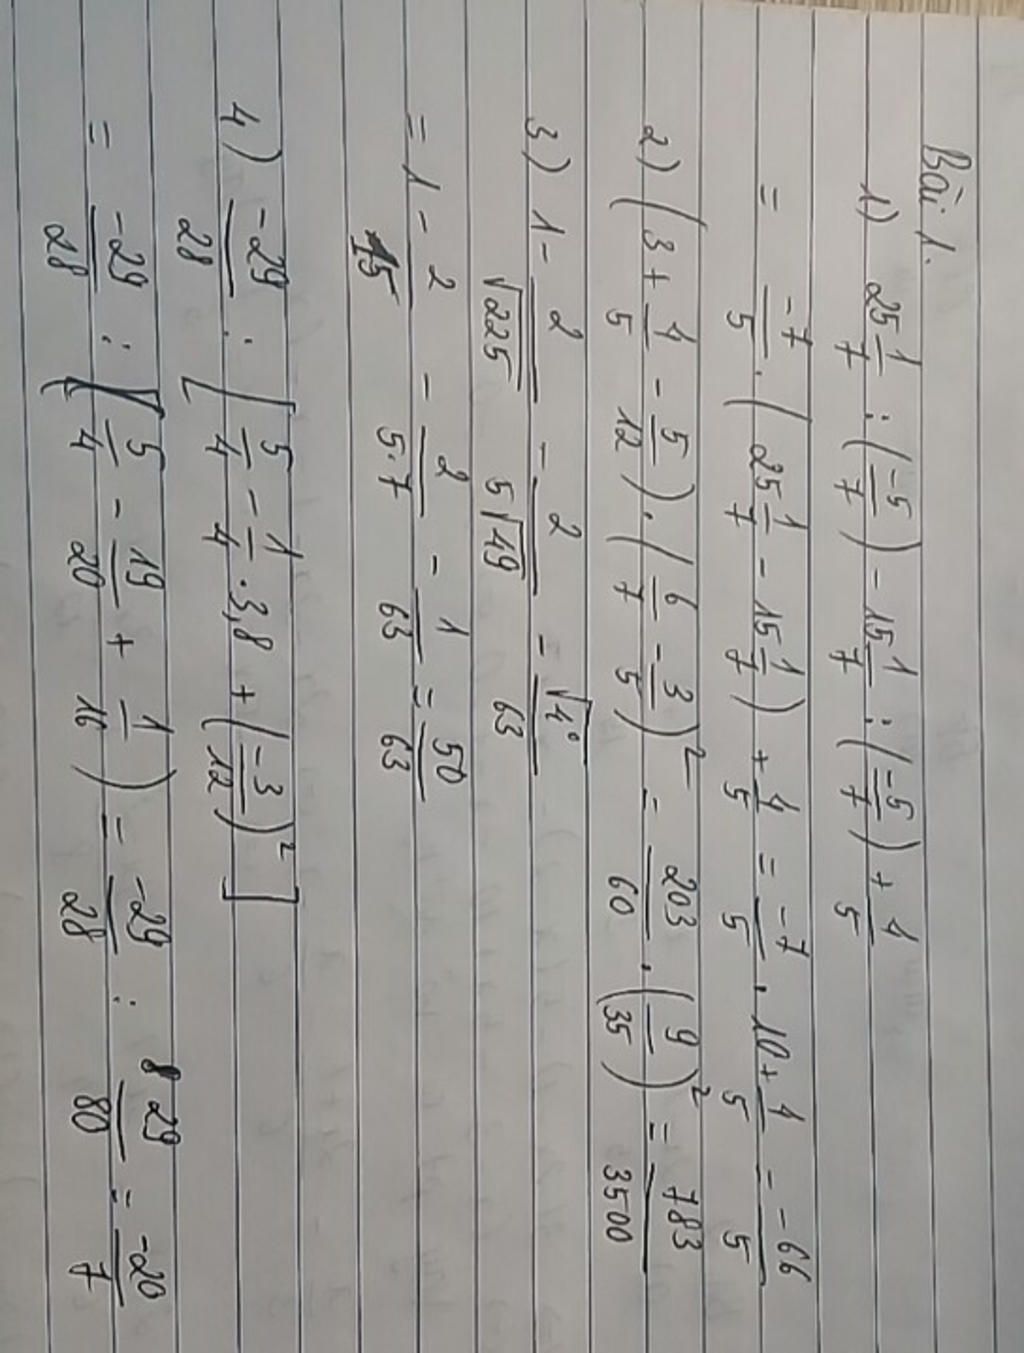 Bài 1.
1) 25 1/7 : (-5/7) - 15 1/7 : (-5/7) + 4/5
= -7/5 . (25 1/7 - 15 1/7) + 4/5 = -7/5 . 10 + 4/5 = -66/5
2) (3 + 4/5 - 5/12) . (6/7 - 3/5)² = 203/60 . (9/35)² = 783/3500
3) 1 - 2/√225 - 2/5√49 - √4°/63
= 1 - 2/15 - 2/5.7 - 1/63 = 50/63
4) -29/28 : [5/4 - 1/4 . 3,8 + (-3/12)²]
= -29/28 : (5/4 - 19/20 + 1/16) = -29/28 : 29/80 = -20/7